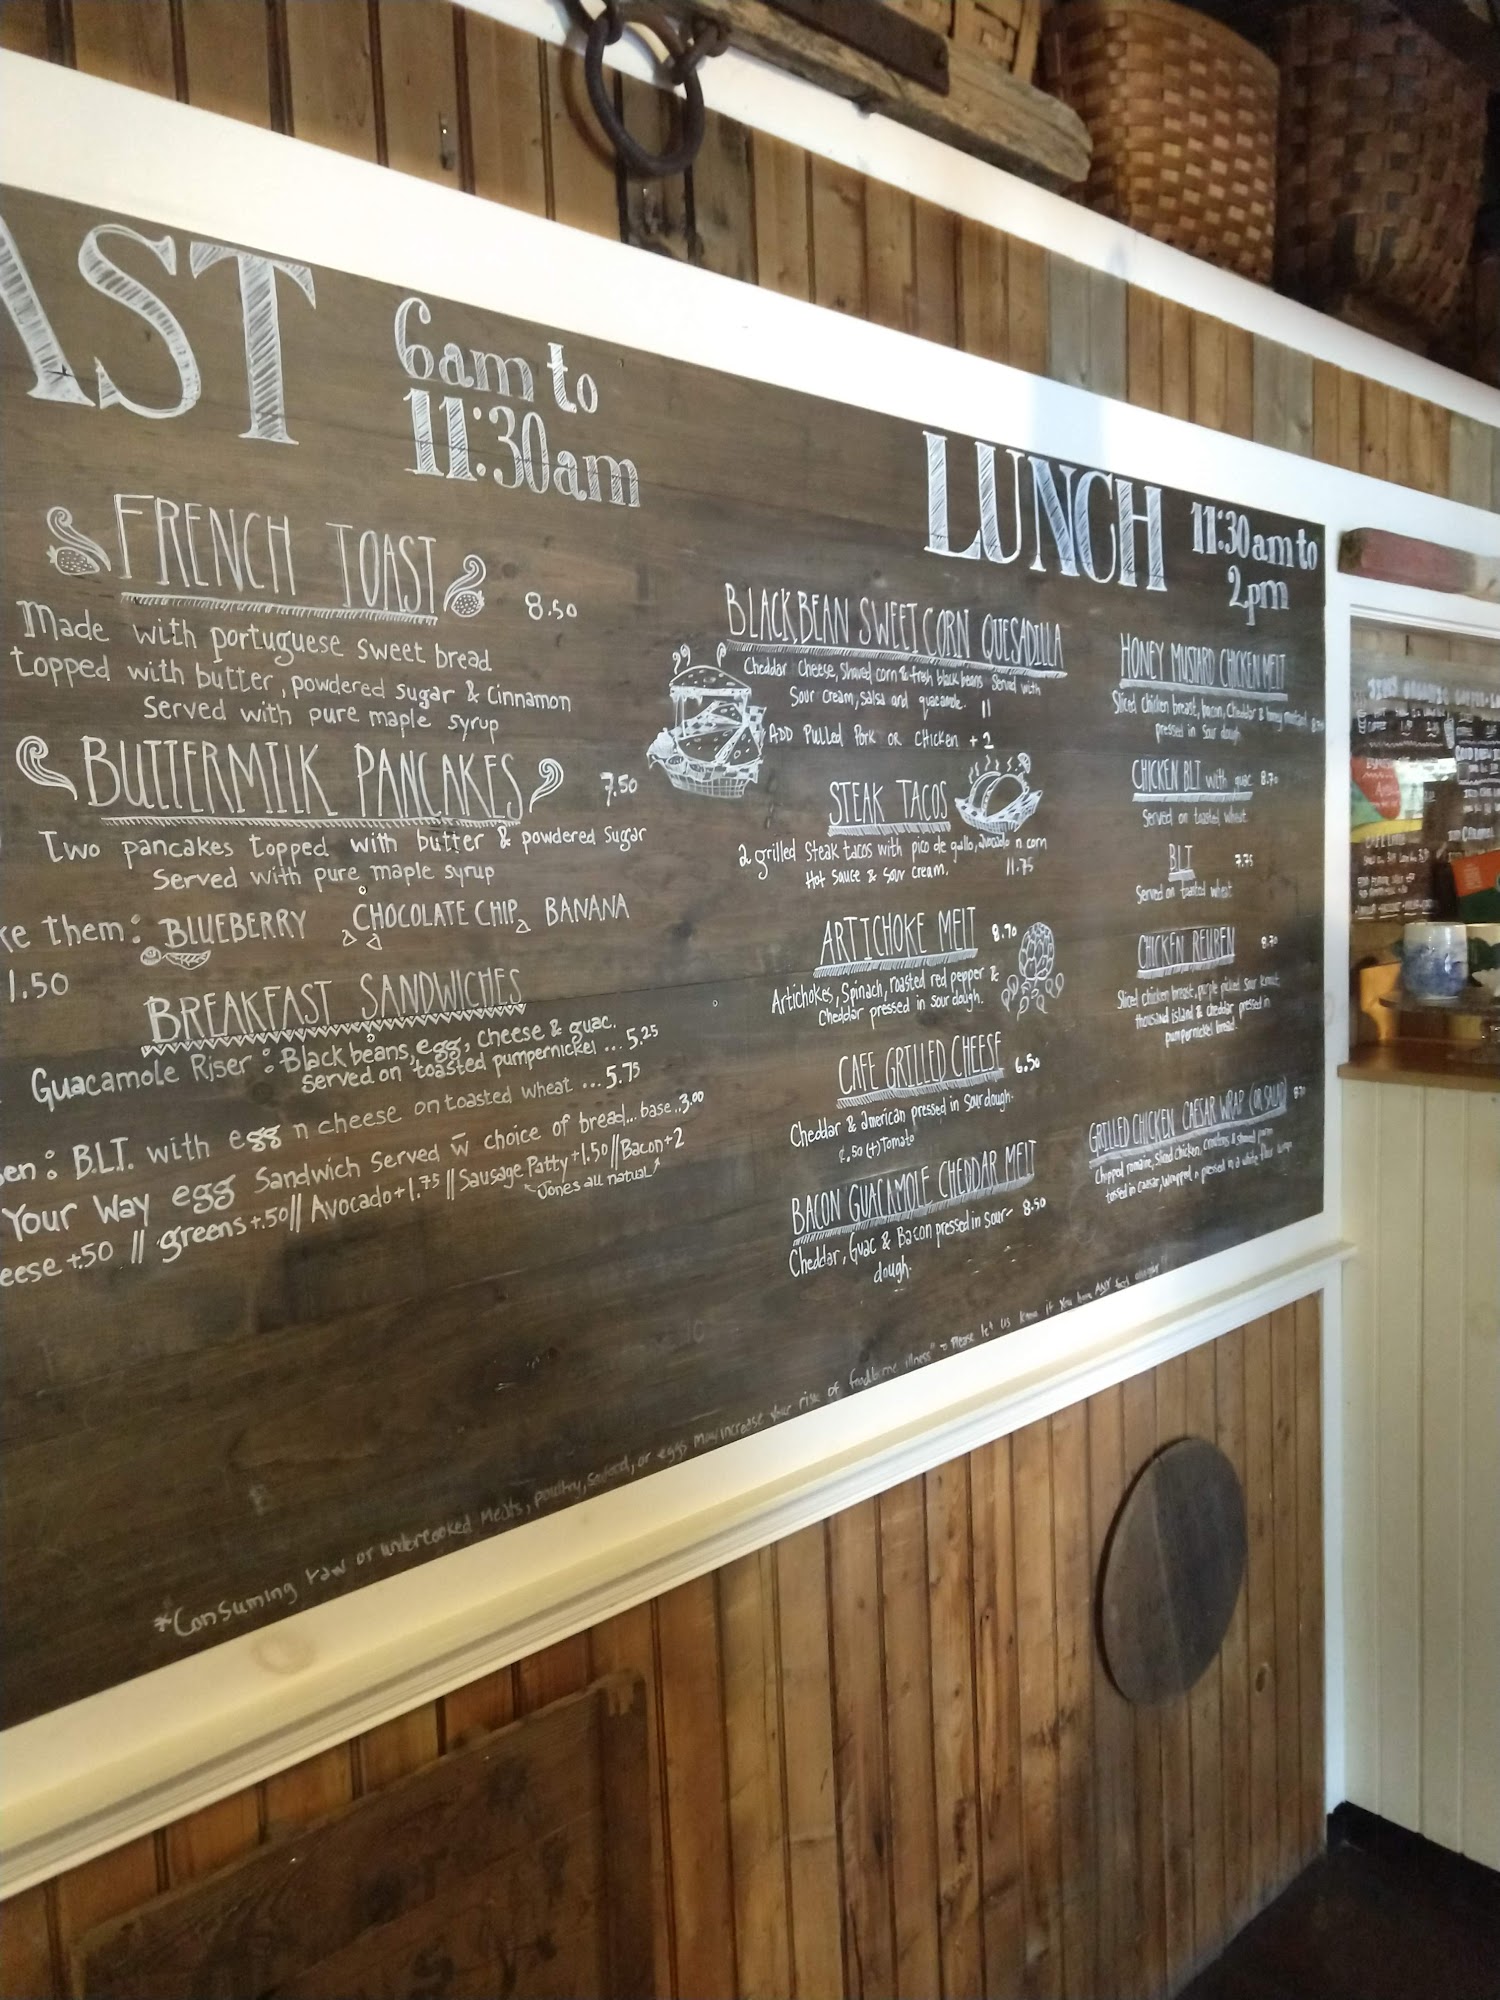 AST
6am to
11:30am
FRENCH TOAST
8.50
Made with portuguese sweet bread
topped with butter, powdered sugar & cinnamon
Served with pure maple syrup
BUTTERMILK PANCAKES
7.50
Two pancakes topped with butter & powdered sugar
Served with pure maple syrup
ke them: BLUEBERRY CHOCOLATE CHIP BANANA
1.50
BREAKFAST SANDWICHES
Guacamole Riser: Black beans, egg, cheese & guac.
served on toasted pumpernickel ... 5.25
en: B.L.T. with egg n cheese on toasted wheat ... 5.75
Your Way egg Sandwich Served w choice of bread... base..3.00
eese +.50 // greens +.50 // Avocado +1.75 // Sausage Patty +1.50 // Bacon +2
Jones all natural
LUNCH
11:30am to
2pm
BLACK BEAN SWEET CORN QUESADILLA
Cheddar Cheese, Shaved corn & fresh black beans Served with
Sour Cream, Salsa and guacamole.
11
ADD Pulled Pork or Chicken +2
STEAK TACOS
2 grilled Steak tacos with pico de gallo, avocado n corn
Hot Sauce & Sour Cream.
11.75
ARTICHOKE MELT
8.70
Artichokes, Spinach, roasted red pepper &
Cheddar pressed in sour dough.
CAFE GRILLED CHEESE
6.50
Cheddar & american pressed in Sourdough.
.50 (+) Tomato
BACON GUACAMOLE CHEDDAR MELT
Cheddar, Guac & Bacon pressed in sour- 8.50
dough.
HONEY MUSTARD CHICKEN MELT
Sliced chicken breast, bacon, Cheddar & honey mustard
pressed in Sour dough
CHICKEN BLT with guac 8.70
Served on toasted wheat
BLT
7.75
Served on toasted wheat
CHICKEN REUBEN
8.70
Sliced chicken breast, purple pickled sour kraut,
thousand island & cheddar pressed in
pumpernickel bread.
GRILLED CHICKEN CAESAR WRAP (OR SALAD)
Chopped romaine, Sliced chicken, croutons & shaved parm
tossed in caesar, wrapped n pressed in a white flour wrap
*Consuming raw or undercooked Meats, poultry, seafood, or eggs may increase your risk of foodborne illness" - Please let us know if you have ANY food allergies